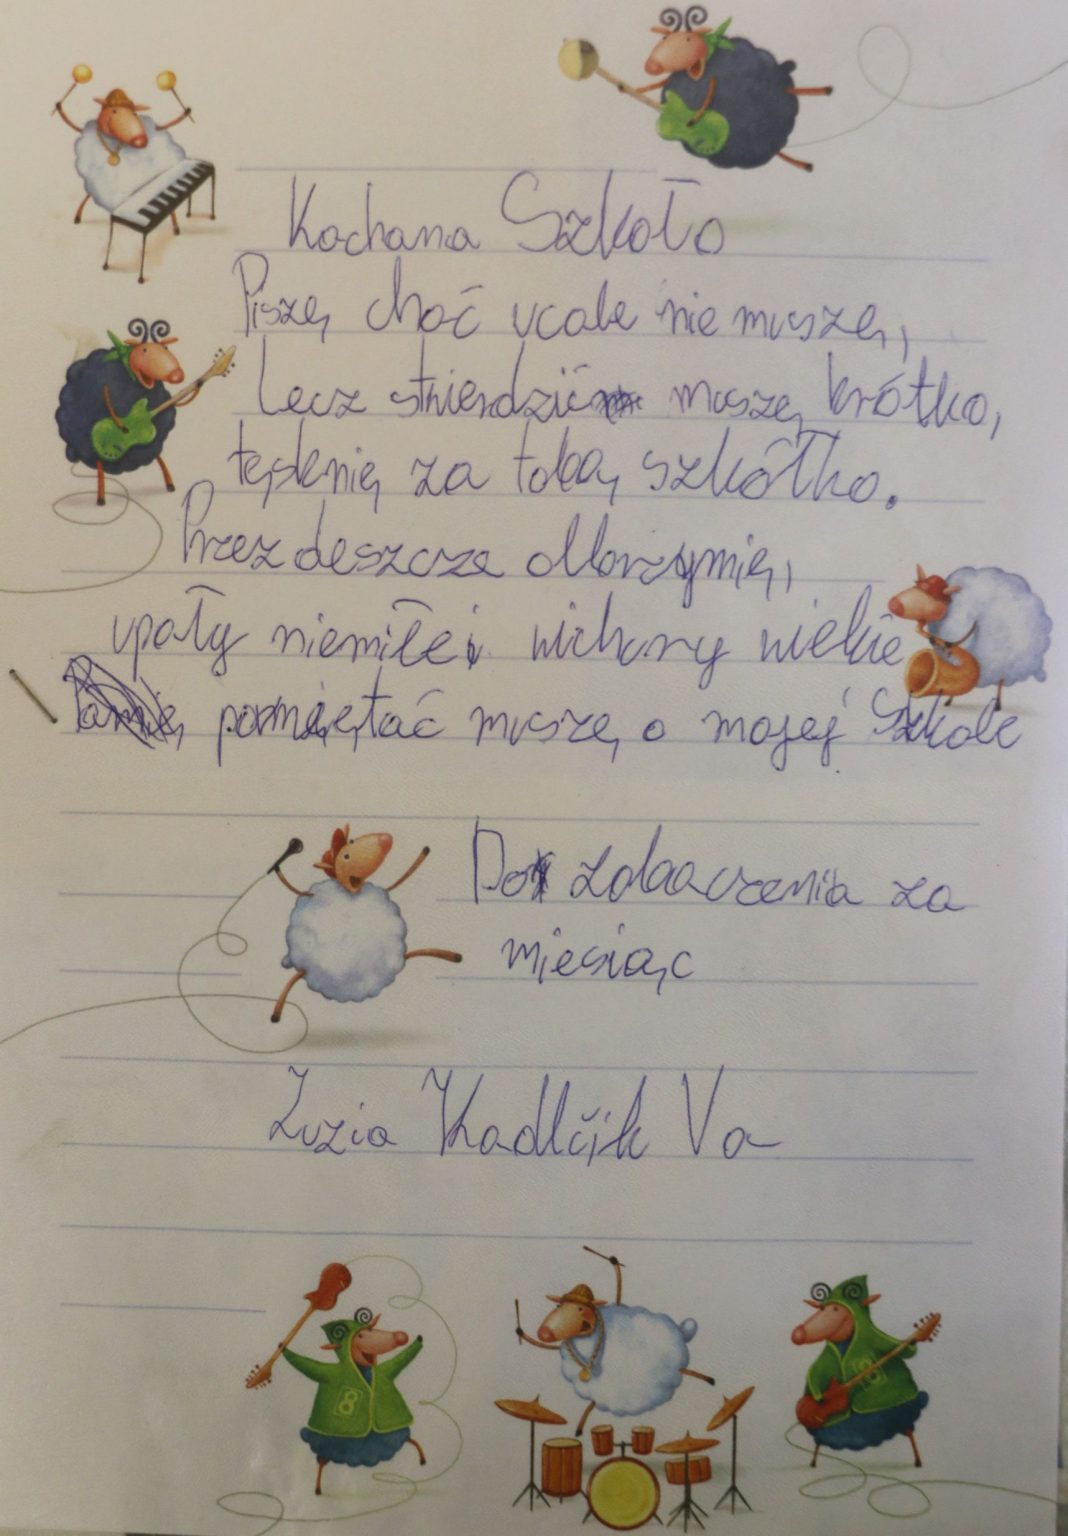 Kochana Szkoło
Piszę choć wcale nie muszę,
Lecz stwierdzić muszę krótko,
tęsknię za tobą szkółko.
Przez deszcze olbrzymie,
upały niemiłe i wichury wielkie
pamiętać muszę o mojej Szkole
Do zobaczenia za
miesiąc
Zuzia Kadlčik Va
8
8